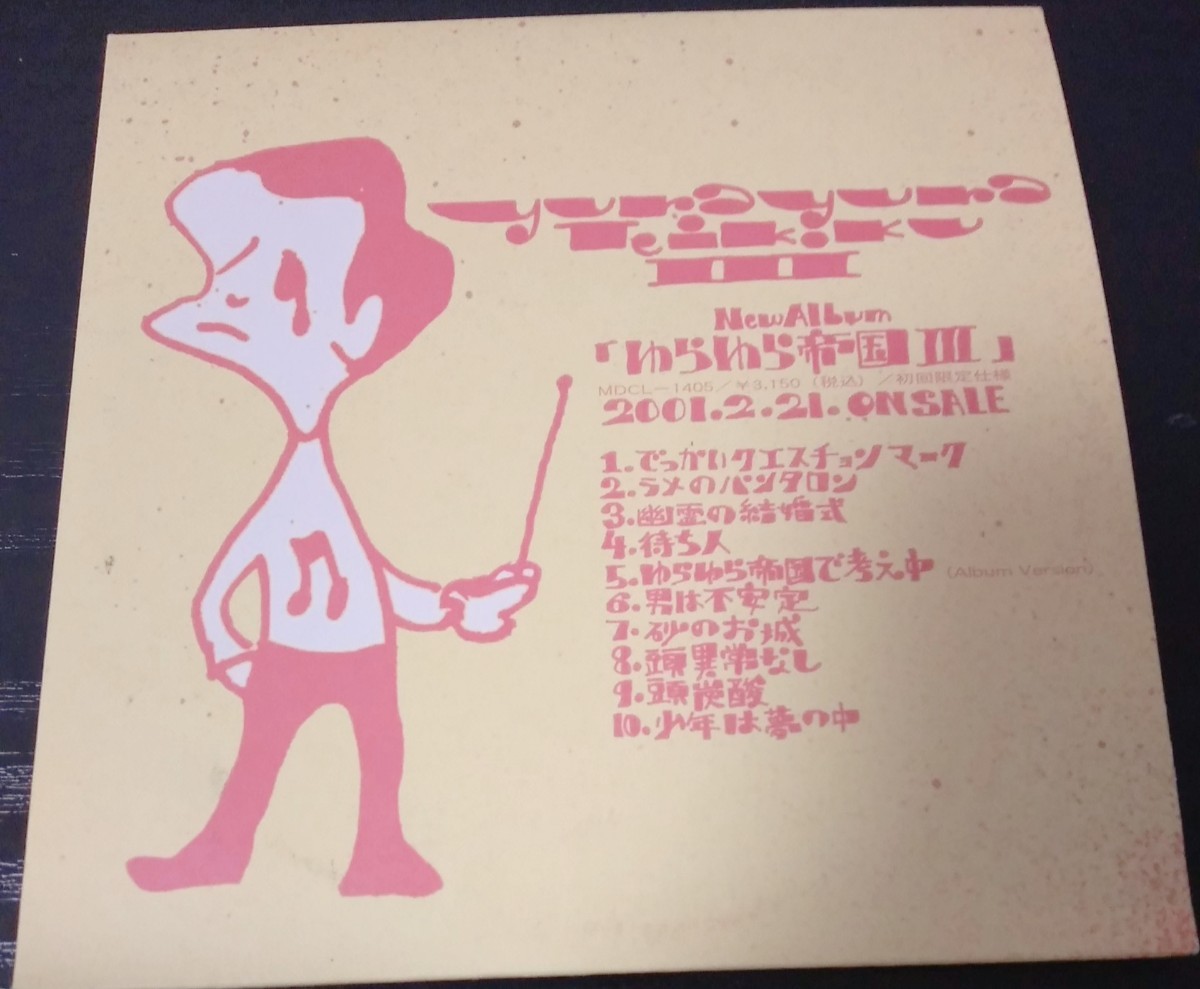 yura yura
Teikoku
III
New Album
「ゆらゆら帝国 III」
MDCL-1405/¥3,150(税込)/初回限定仕様
2001.2.21.ON SALE
1.でっかいクエスチョンマーク
2.ラメのパンタロン
3.幽霊の結婚式
4.待ち人
5.ゆらゆら帝国で考え中 (Album Version)
6.男は不安定
7.砂のお城
8.頭異常なし
9.頭炭酸
10.少年は夢の中